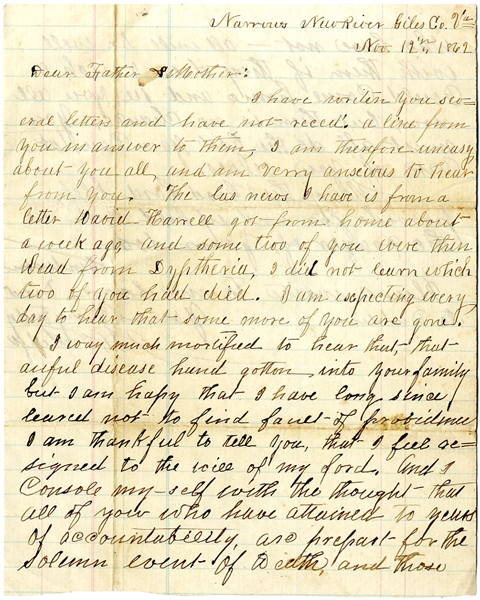 Narrows New River Giles Co. Va
Nov. 12th, 1862
Dear Father & Mother:
I have writen you sev-
eral letters and have not recd. a line from
you in answer to them, I am therefore uneasy
about you all, and am verry anscious to hear
from you. The las news I have is from a
letter David Harrell got from home about
a week ago, and some two of you were then
Dead from Dyptheria, I did not learn which
two of you had died. I am expecting every
day to hear that some more of you are gone.
I way much mortified to hear that, that
auful disease hand gotton into your family
but I am hapy that I have long since
leared not to find fault of providince
I am thankful to tell you, that I feel re-
signed to the will of my lord. And I
Console my-self with the thought that
all of you who have attained to years
of accountability, are prepart for the
Solemn event of Death, and those